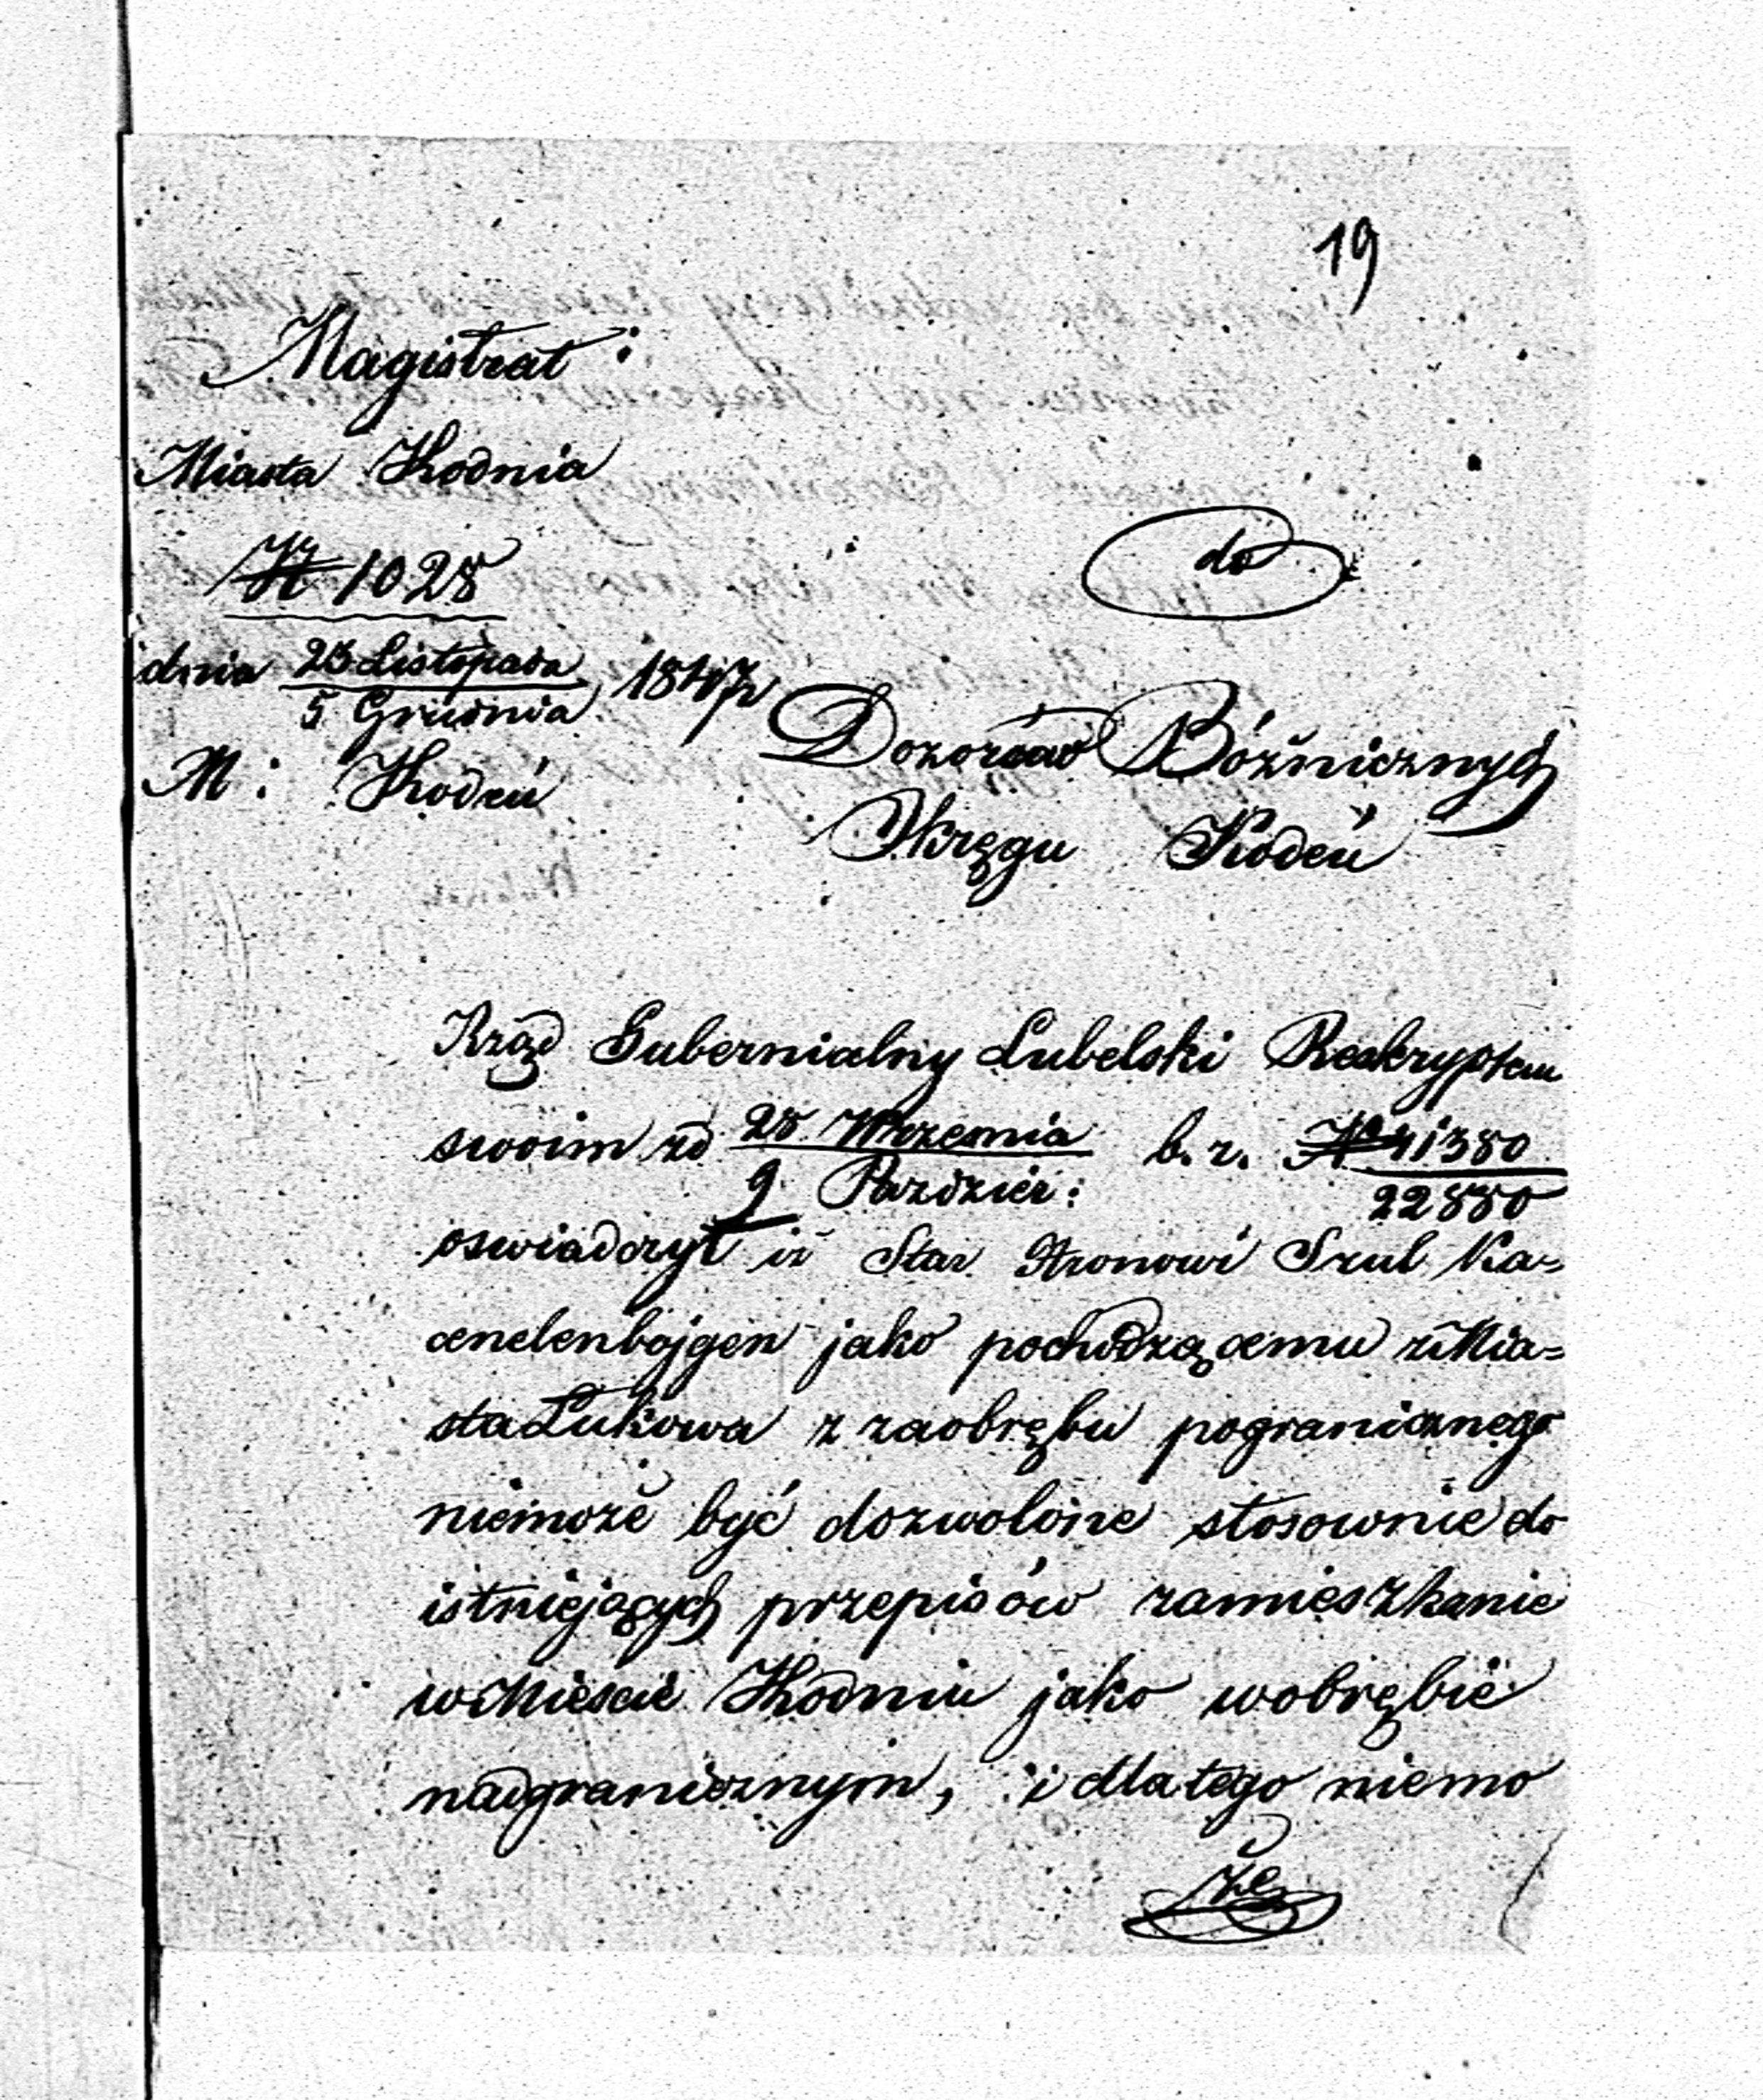 19
Magistrat:
Miasta Kodnia
N 1028
do
dnia 23 Listopada 1847 r
5 Grudnia
M: Kodeń
Dozorców Bóźnicznych
Okręgu Kodeń
Rząd Gubernialny Lubelski Reskryptem
swoim zd 28 Wrzesnia b. r. N 41380
9 Pazdzier: 22880
oswiadczył iż Star Aronowi Szul Ka=
cenelenbojgen jako pochodzącemu z Mia=
sta Łukowa z zaobrębu pogranicznego
niemoże być dozwolone stosownie do
istniejących przepisów zamieszkanie
w Miescie Kodniu jako wobrębie
nadgranicznym, i dla tego niemo
że